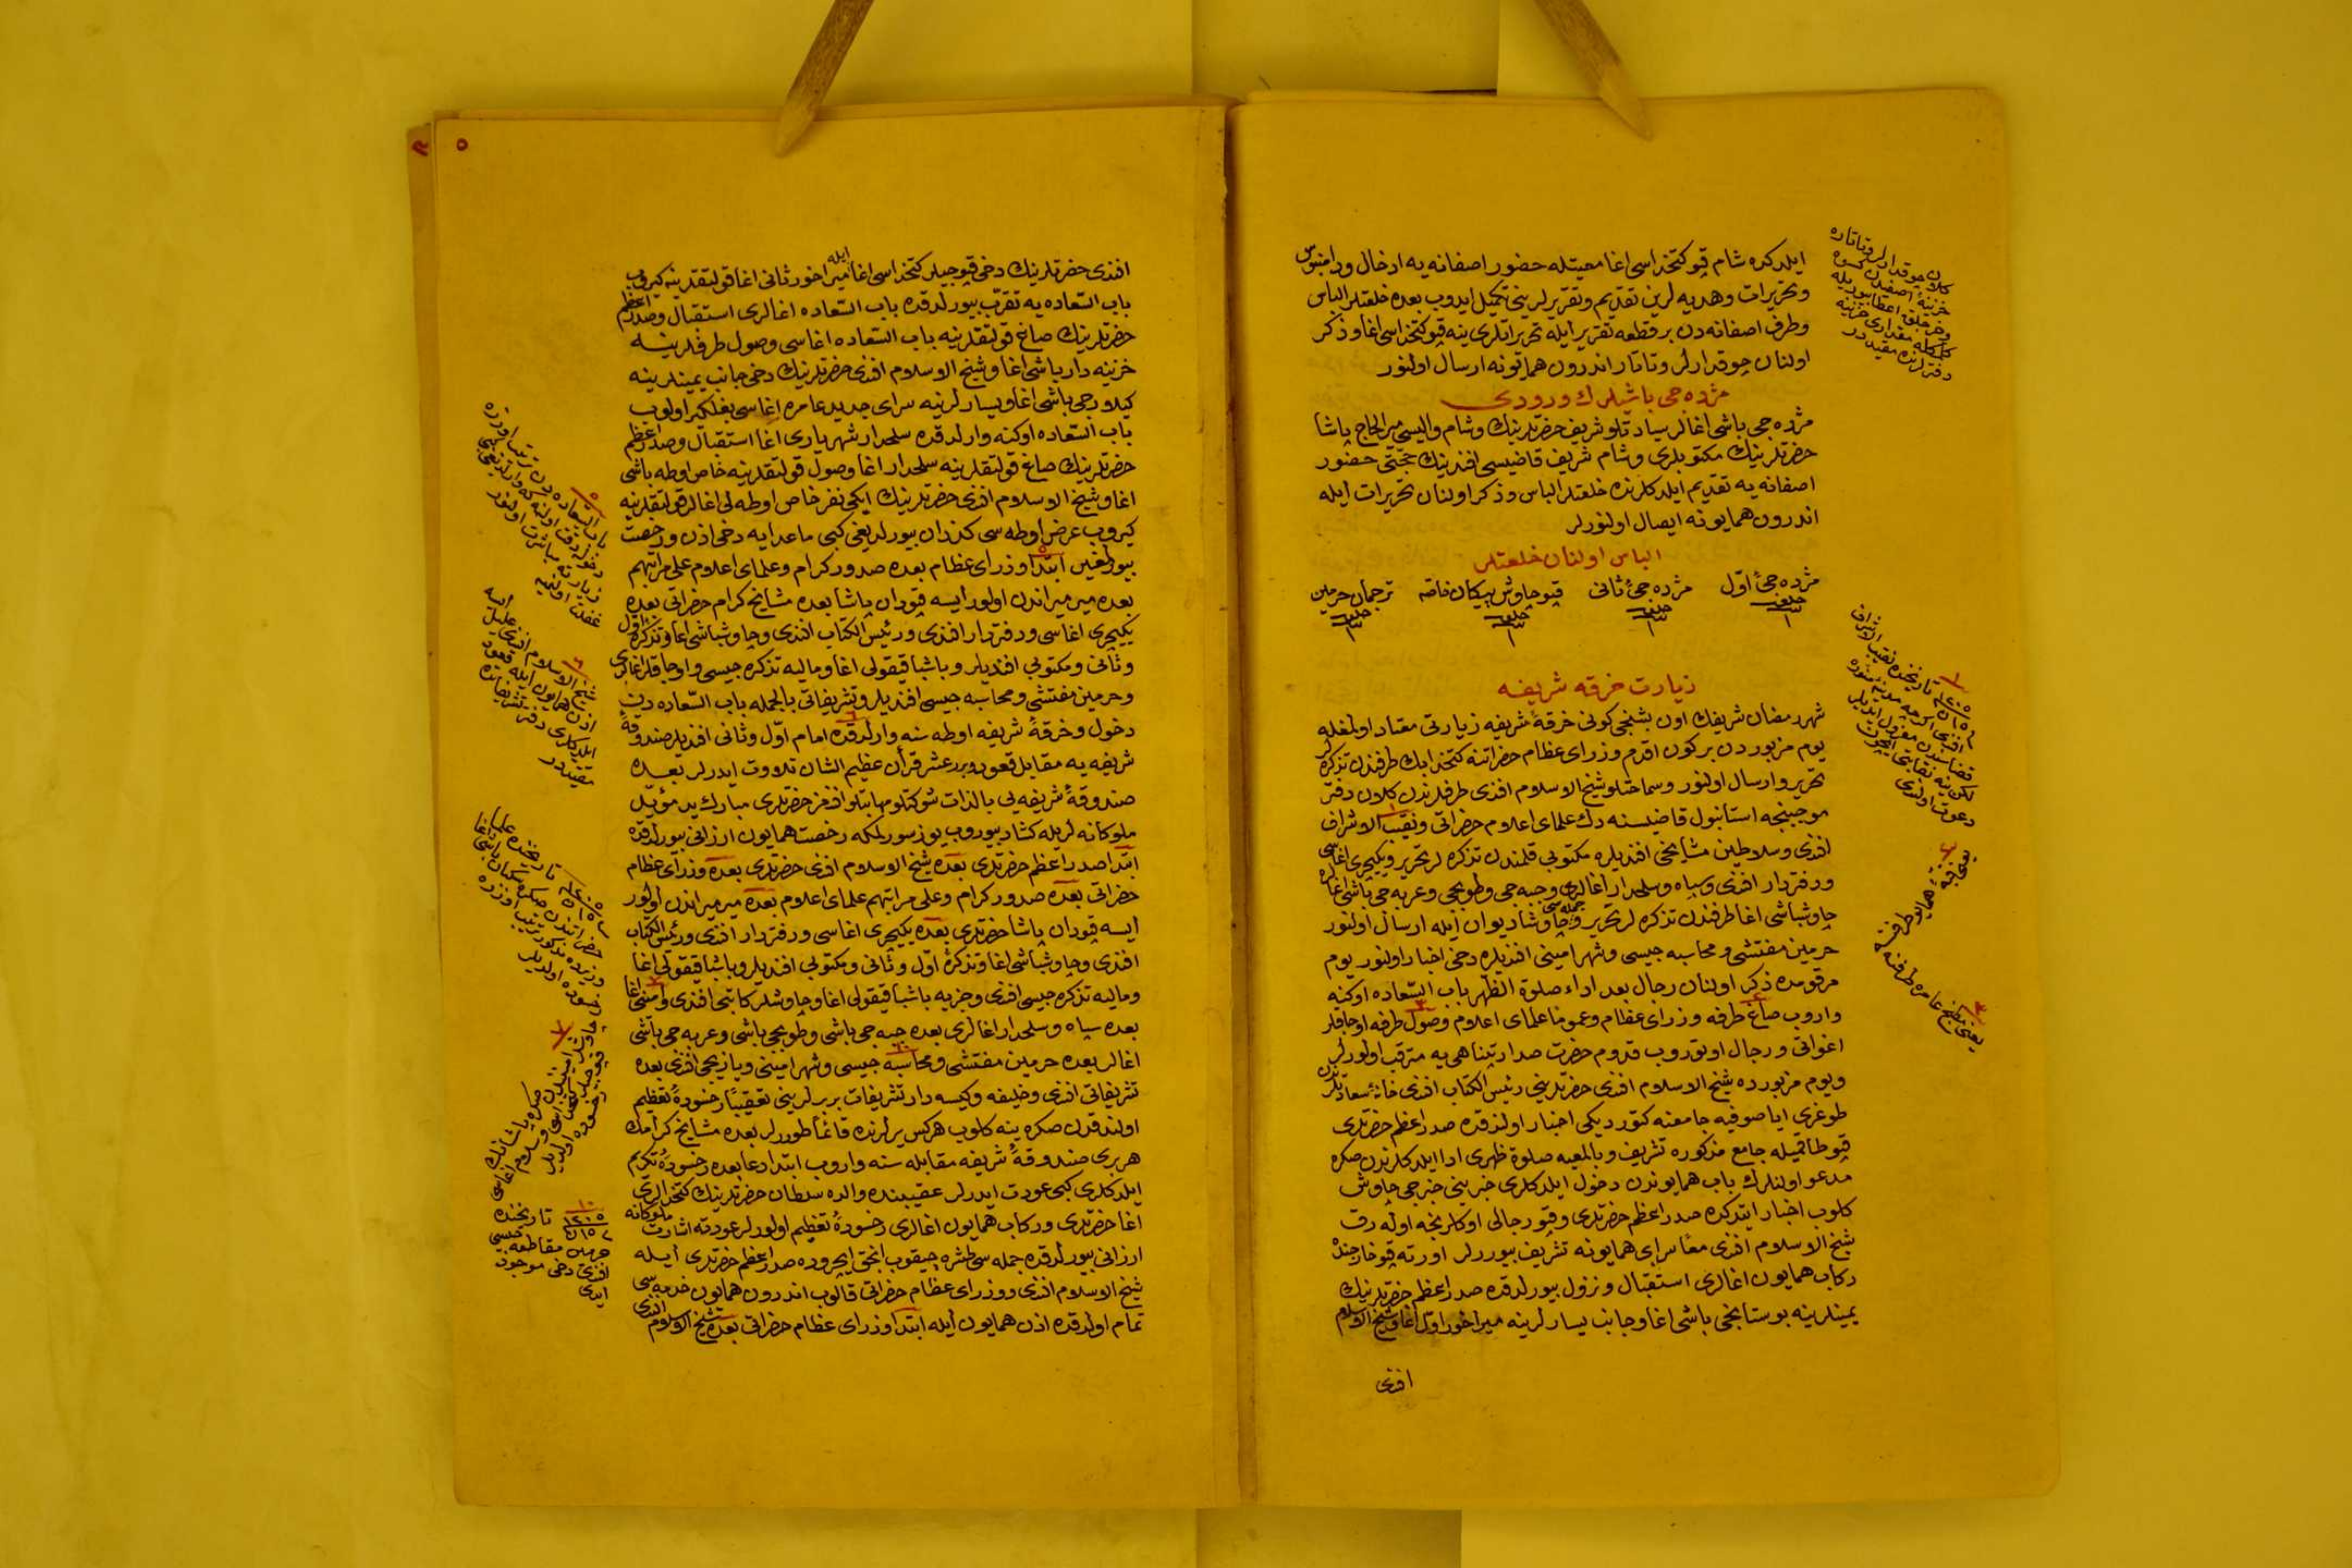 ایلدکده شام قپو کتخداسی اغا معیتله حضور اصفانه‌یه ادخال ودامنبوس
وتحریرات وهدیه‌لرین تقدیم وتقریرلرینی تکمیل ایدوب بعده خلعتلر الباس
وطرف اصفانه‌دن بر قطعه تقریر ایله تحریراتلری ینه قپو کتخداسی اغا وذکر
اولنان چوقدارلر وتاتار اندرون همایونه ارسال اولنور
مژده‌جی باشیلرك ورودی
مژده‌جی باشی اغالر سیادتلو شریف حضرتلرینك وشام والیسی میر الحاج پاشا
حضرتلرینك مکتوبلری وشام شریف قاضیسی افندینك حجتی حضور
اصفانه‌یه تقدیم ایلدکلرنده خلعتلر الباس وذکر اولنان تحریرات ایله
اندرون همایونه ایصال اولنورلر
الباس اولنان خلعتلر
مژده‌جیٔ اوّل مژده‌جیٔ ثانی قپو چاوش پیکان خاصه ترجمان حرمین
زیارت خرقه شریفه
شهر رمضان شریفك اون بشنجی کونی خرقهٔ شریفه زیارتی معتاد اولمغله
یوم مزبوردن بر کون اقدم وزرای عظام حضراتنه کتخدا بك طرفندن تذکره‌لر
تحریر وارسال اولنور وسماحتلو شیخ الاسلام افندی طرفلرندن کلان دفتر
موجبنجه استانبول قاضیسنه دك علمای اعلام حضراتی ونقیب الاشراف
افندی وسلاطین مشایخی افندیلره مکتوبی قلمندن تذکره‌لر تحریر ویکیچری اغاسی
ودفتردار افندی وسپاه وسلحدار اغالری وجبه‌جی وطوپجی وعربه‌جی باشی اغالره
چاوشباشی اغا طرفندن تذکره‌لر تحریر وجمله‌سی چاوشان دیوان ایله ارسال اولنور
حرمین مفتشی ومحاسبه‌جیسی وشهر امینی افندیلره دخی اخبار اولنور یوم
مرقومده ذکر اولنان رجال بعد اداء صلوة الظهر باب السعاده اوکنه
واروب صاغ طرفه وزرای عظام وعموما علمای اعلام وصول طرفه اوجاقلر
اغواتی ورجال اوتوروب قدوم حضرت صدارتپناهی‌یه مترقب اولورلر
ویوم مزبورده شیخ الاسلام افندی حضرتلرینی رئیس الکتاب افندی خانهٔ سعادتلرندن
طوغری ایاصوفیه جامعنه کتوردیکی اخبار اولندقده صدر اعظم حضرتلری
قپو طاقمیله جامع مذکوره تشریف وبالمعیه صلوة ظهری ادا ایلدکلرندن صکره
مدعو اولنلرك باب همایوندن دخول ایلدکلری خبرینی خبرجی چاوش
کلوب اخبار ایتدکده صدر اعظم حضرتلری وقپو رجالی اوکلرنجه اوله‌رق
شیخ الاسلام افندی معا سرای همایونه تشریف بیوررلر اورته قپو خارجنده
رکاب همایون اغالری استقبال ونزول بیورلدقده صدر اعظم حضرتلرینك
یمینلرینه بوستانجی باشی اغا وجانب یسارلرینه میراخور اوّل اغا وشیخ الاسلام
افندی
یعنی مطبخ عامره طرفنه
افندی حضرتلرینك دخی قپوجیلر کتخداسی اغا ایله میراخور ثانی اغا قولتقلرینه کیروب
باب السعاده‌یه تقرّب بیورلدقده باب السعاده اغالری استقبال وصدر اعظم
حضرتلرینك صاغ قولتقلرینه باب السعاده اغاسی وصول طرفلرینه
خزینه‌دار باشی اغا وشیخ الاسلام افندی حضرتلرینك دخی جانب یمینلرینه
کیلارجی باشی اغا ویسارلرینه سرای جدید عامره اغاسی بغلکیر اولوب
باب السعاده اوکنه وارلدقده سلحدار شهریاری اغا استقبال وصدر اعظم
حضرتلرینك صاغ قولتقلرینه سلحدار اغا وصول قولتقلرینه خاص اوطه باشی
اغا وشیخ الاسلام افندی حضرتلرینك ایکی نفر خاص اوطه‌لی اغالر قولتقلرینه
کیروب عرض اوطه‌سی کذران بیورلدیغی کبی ماعدایه دخی اذن ورخصت
بیورلمغین ابتدا وزرای عظام بعده صدور کرام وعلمای اعلام علی مراتبهم
بعده میرمیراندن اولور ایسه قپودان پاشا بعده مشایخ کرام حضراتی بعده
یکیچری اغاسی ودفتردار افندی ورئیس الکتاب افندی وچاوشباشی اغا وتذکرهٔ اوّل
وثانی ومکتوبی افندیلر وباشباقیقولی اغا ومالیه تذکره‌جیسی واوجاقلر اغالری
وحرمین مفتشی ومحاسبه‌جیسی افندیلر وتشریفاتی بالجمله باب السعاده‌دن
دخول وخرقهٔ شریفه اوطه‌سنه وارلدقده امام اوّل وثانی افندیلر صندوقهٔ
شریفه‌یه مقابل قعود وبرر عشر قرآن عظیم الشان تلاوت ایدرلر بعده
صندوقهٔ شریفه‌یی بالذات شوکتلو مهابتلو افندمز حضرتلری مبارك ید مؤیّد
ملوکانه‌لریله کشاد بیوروب یوز سورلمکه رخصت همایون ارزانی بیورلدقده
ابتدا صدر اعظم حضرتلری بعده شیخ الاسلام افندی حضرتلری بعده وزرای عظام
حضراتی بعده صدور کرام وعلی مراتبهم علمای اعلام بعده میرمیراندن اولور
ایسه قپودان پاشا حضرتلری بعده یکیچری اغاسی ودفتردار افندی ورئیس الکتاب
افندی وچاوشباشی اغا وتذکرهٔ اوّل وثانی ومکتوبی افندیلر وباشباقیقولی اغا
ومالیه تذکره‌جیسی افندی وجزیه باشباقیقولی اغا وچاوشلر کاتبی افندی وامینی اغا
بعده سپاه وسلحدار اغالری بعده جبه‌جی باشی وطوپجی باشی وعربه‌جی باشی
اغالر بعده حرمین مفتشی ومحاسبه‌جیسی وشهر امینی ویازیجی افندی بعده
تشریفاتی افندی وخلیفه وکیسه‌دار تشریفات بربرلرینی تعقیباً رخسودهٔ تعظیم
اولندقدن صکره ینه کلوب هرکس یرلرنده قائماً طوررلر بعده مشایخ کرامك
هربری صندوقهٔ شریفه مقابله‌سنه واروب ابتدا دعا بعده رخسودهٔ تکریم
ایلدکلری کبی عودت ایدرلر عقیبنده والده سلطان حضرتلرینك کتخدالری
اغا حضرتلری ورکاب همایون اغالری رخسودهٔ تعظیم اولورلر عودته اشارت ملوکانه
ارزانی بیورلدقده جمله‌سی طشره چیقوب انجق ایچروده صدر اعظم حضرتلری ایله
شیخ الاسلام افندی ووزرای عظام حضراتی قالوب اندرون همایون خدمه‌سی
تمام اولدقده اذن همایون ایله ابتدا وزرای عظام حضراتی بعده شیخ الاسلام افندی
شیخ الاسلام افندی علیل ایسه
اذن همایون ایله قعود
ایلدکلری دفتر تشریفاتده
مقیددر
١٢٠٥ تاریخنده
حرمین مقاطعه‌جیسی
افندی دخی موجود
ایدی